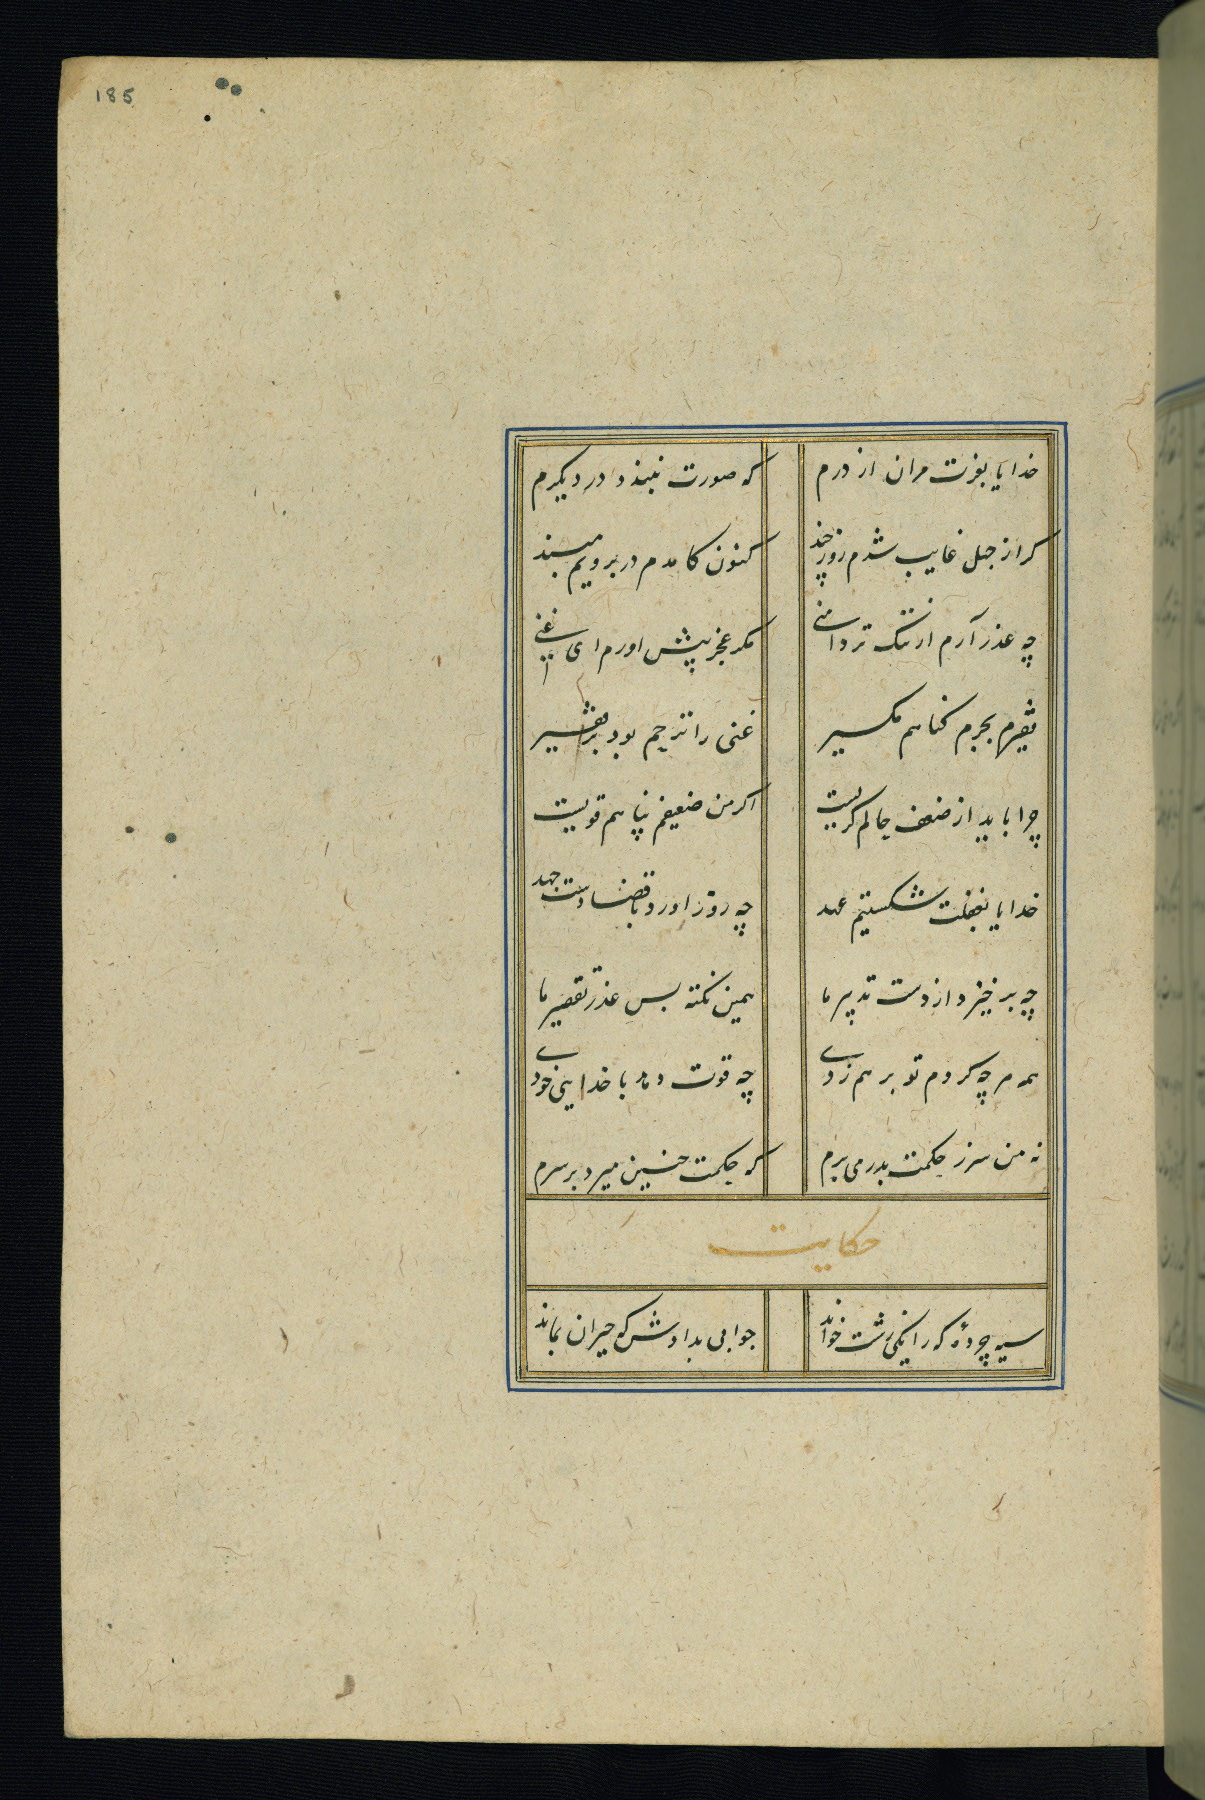 185
خدایا بعزت مران از درم که صورت نبندد در دیگرم
کر از جهل غایب شدم روز چند کنون کامدم در برویم مبند
چه عذر آرم از ننک تر دامنی مکر عجز پیش اورم ای غنی
فقیرم بجرم کناهم مکیر غنی را ترحم بود بر فقیر
چرا باید از ضعف حالم کریست اکر من ضعیفم پناهم قویست
خدایا بغفلت شکستیم عهد چه روز اورد با قضا دست جهد
چه بر خیزد از دست تدبیر ما همین نکته بس عذر تقصیر ما
همه هر چه کردم تو بر هم زدی چه قوت دهد با خدایی خودی
نه من سر ز حکمت بدر می برم که حکمت چنین میرود بر سرم
حکایت
سیه چرده‌ٔ که را یکی زشت خواند جوابی بدادش که حیران بماند